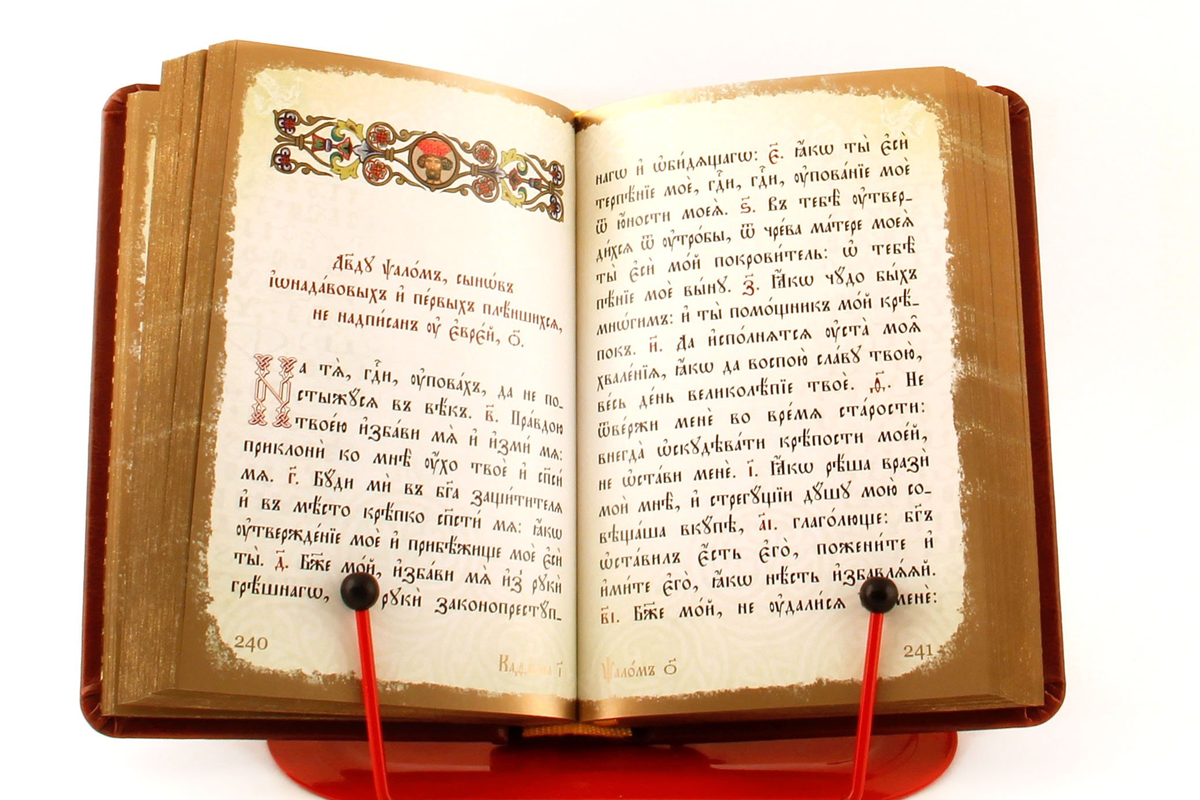 Дв҃ду ѱало́мъ, сынѡ́въ
і҆ѡнада́вовыхъ и҆ пе́рвыхъ плѣ́ншихсѧ,
не надпи́санъ ᲂу҆ є҆вре́й, о҃.
На тѧ̀, гдⷭ҇и, ᲂу҆пова́хъ, да не по_
стыжꙋ́сѧ въ вѣ́къ. в҃. Пра́вдою
твоє́ю и҆зба́ви мѧ̀ и҆ и҆зми́ мѧ:
приклони́ ко мнѣ̀ ᲂу҆́хо твоѐ и҆ сп҃си́
мѧ. г҃. Бꙋ́ди мѝ въ бг҃а защи́тителѧ
и҆ въ мѣ́сто крѣ́пко сп҃сти́ мѧ: ꙗ҆́кѡ
ᲂу҆твержде́нїе моѐ и҆ прибѣ́жище моѐ є҆сѝ
ты̀. д҃. Бж҃е мо́й, и҆зба́ви мѧ̀ и҆з̾ рꙋкѝ
грѣ́шнагѡ, рꙋкѝ законопрестꙋ́п_
240
Ка
і҃
нагѡ и҆ ѡ҆би́дѧщагѡ: є҃. ꙗ҆́кѡ ты̀ є҆сѝ
терпѣ́нїе моѐ, гдⷭ҇и, гдⷭ҇и, ᲂу҆пова́нїе моѐ
ѿ ю҆́ности моеѧ̀. ѕ҃. Въ тебѣ̀ ᲂу҆твер_
ди́хсѧ ѿ ᲂу҆тро́бы, ѿ чре́ва ма́тере моеѧ̀
ты̀ є҆сѝ мо́й покрови́тель: ѡ҆ тебѣ̀
пѣ́нїе моѐ вы́нꙋ. з҃. Ꙗ҆́кѡ чꙋ́до бы́хъ
мнѡ́гимъ: и҆ ты̀ помо́щникъ мо́й крѣ́_
покъ. и҃. Да и҆спо́лнѧтсѧ ᲂу҆ста̀ моѧ̑
хвале́нїѧ, ꙗ҆́кѡ да воспою̀ сла́вꙋ твою̀,
ве́сь де́нь великолѣ́пїе твоѐ. ѳ҃. Не
ѿве́ржи менѐ во вре́мѧ ста́рости:
внегда̀ ѡ҆скꙋдѣва́ти крѣ́пости мое́й,
не ѡ҆ста́ви менѐ. і҃. Ꙗ҆́кѡ рѣ́ша вразѝ
моѝ мнѣ̀, и҆ стрегꙋ́щїи дꙋ́шꙋ мою̀ со_
вѣща́ша вкꙋ́пѣ, а҃і. глаго́люще: бг҃ъ
ѡ҆ста́вилъ є҆́сть є҆го̀, пожени́те и҆
и҆ми́те є҆го̀, ꙗ҆́кѡ нѣ́сть и҆збавлѧ́ѧй.
в҃і. Бж҃е мо́й, не ᲂу҆дали́сѧ менѐ:
Ѱало́мъ о҃
241